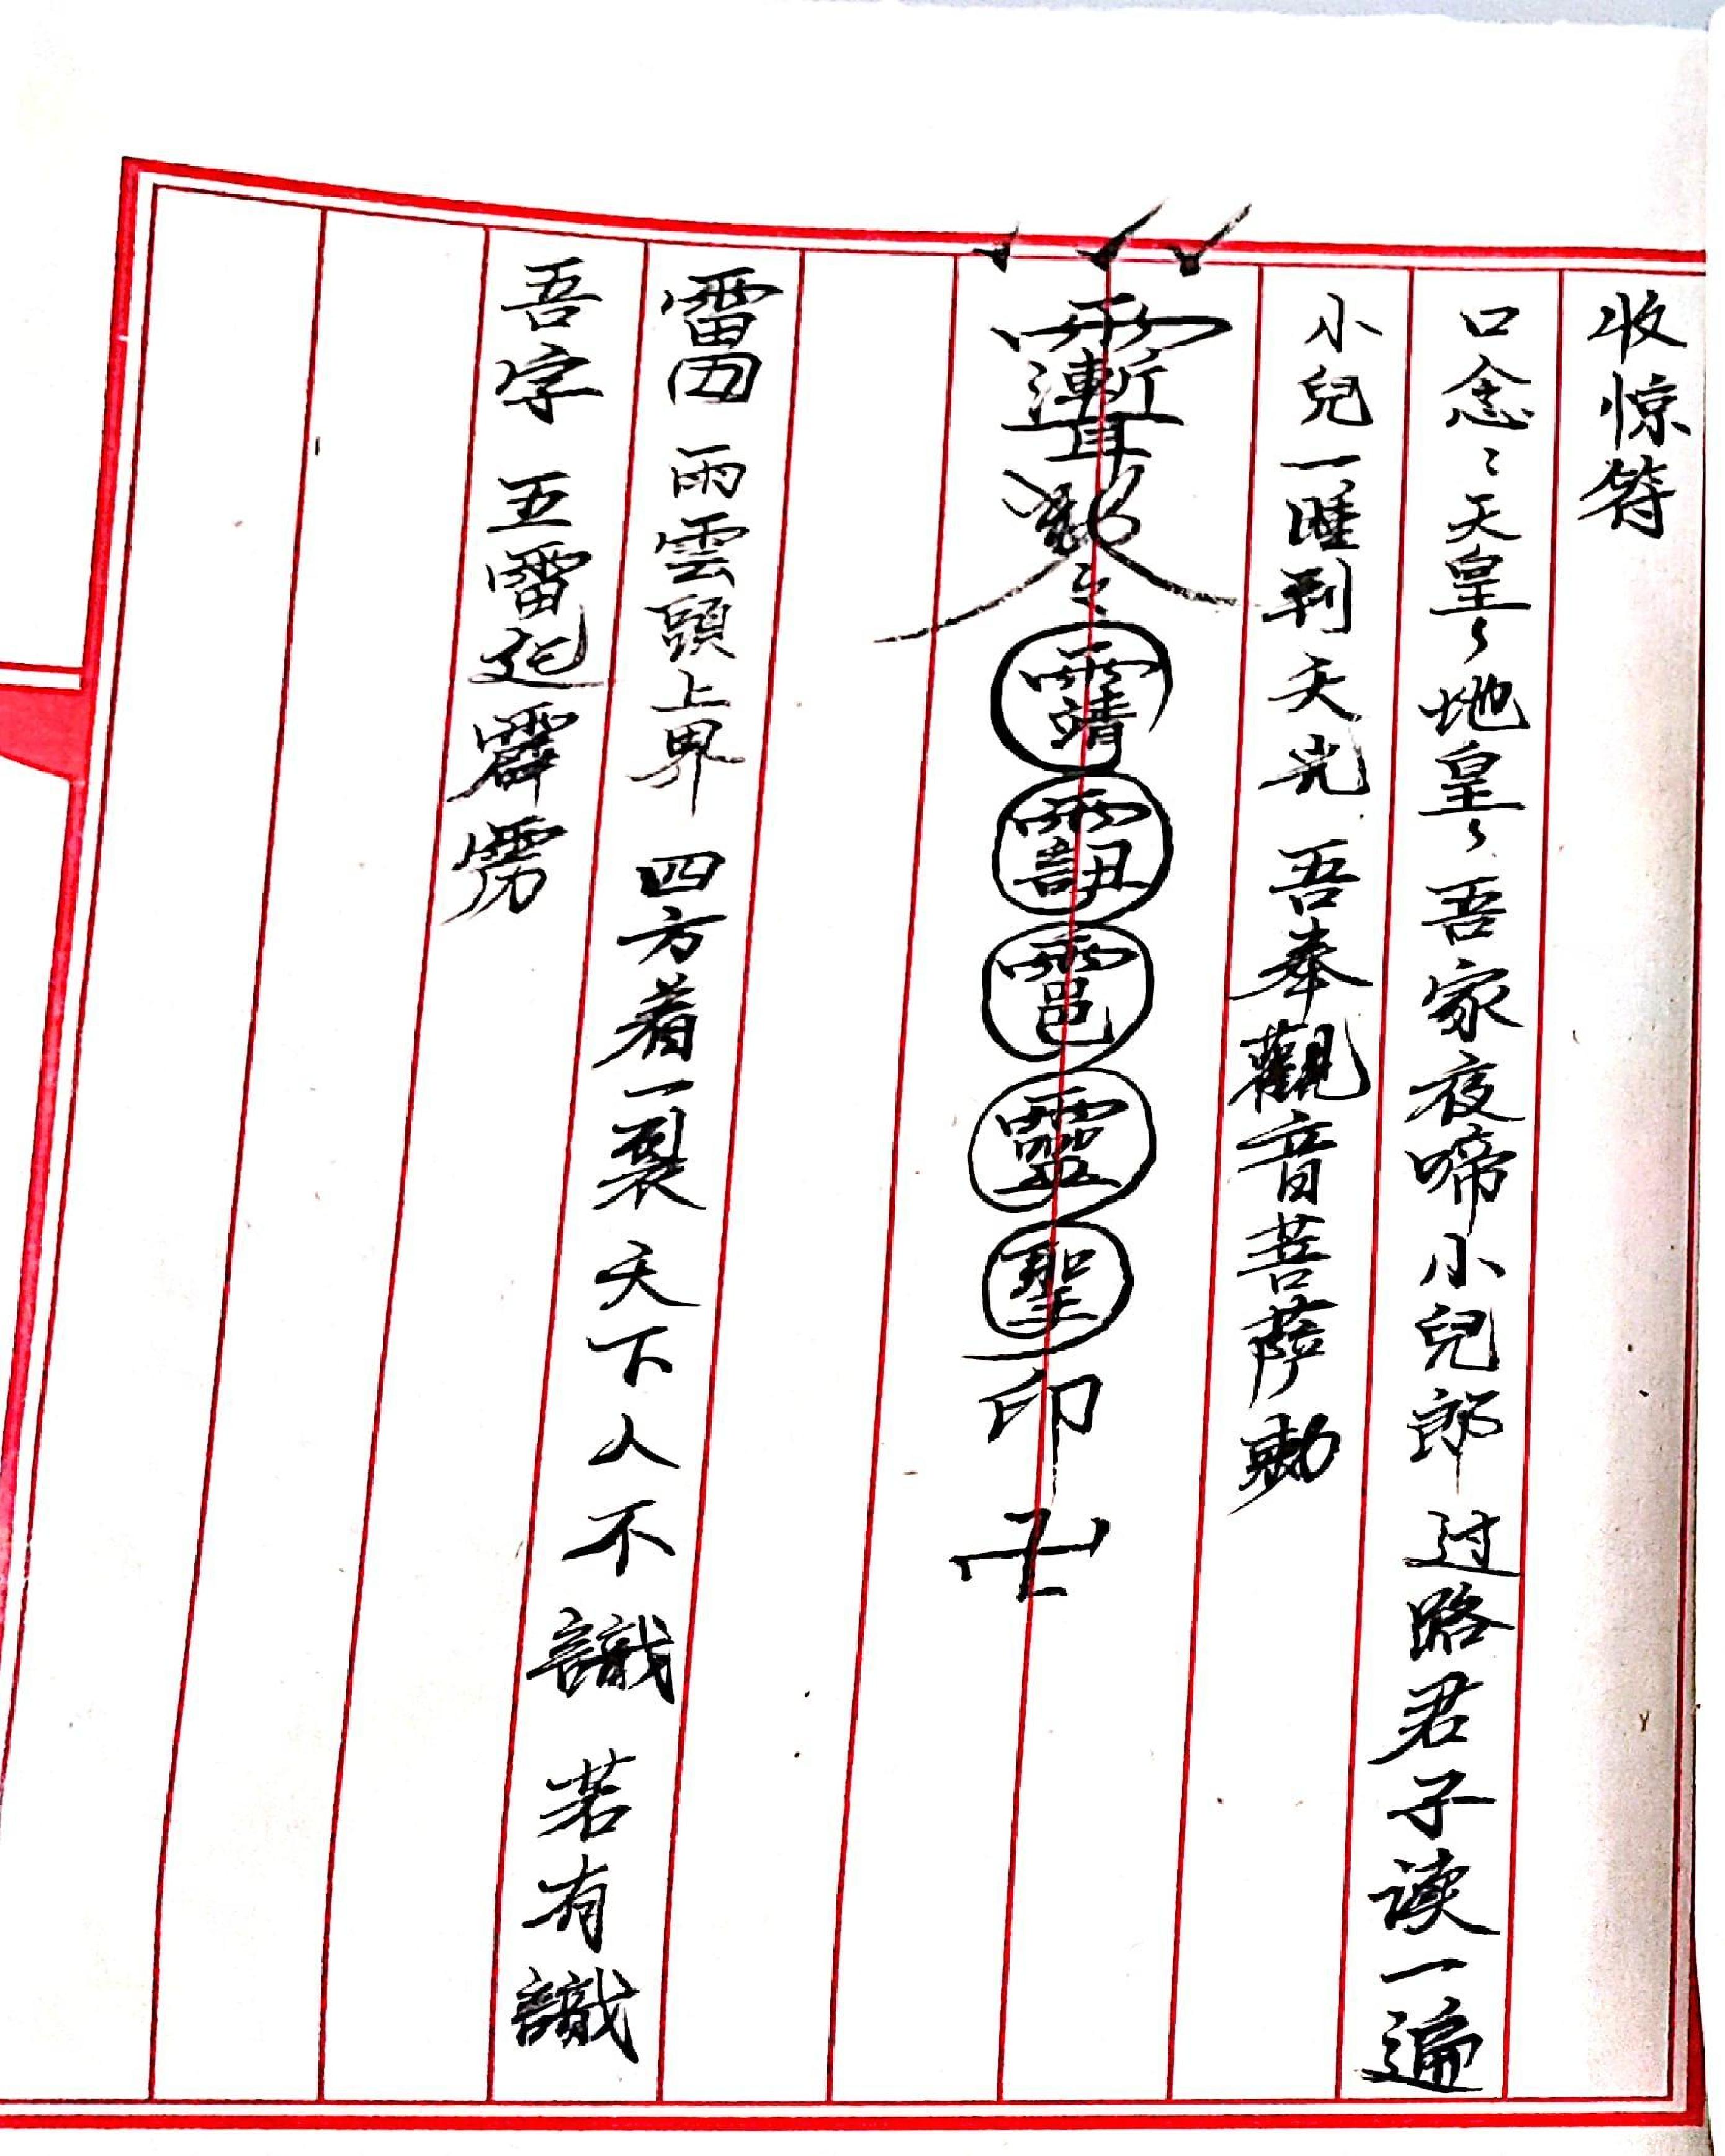 收惊符
口念〻天皇〻地皇〻吾家夜啼小兒郎过路君子读一遍
小兒一睡到天光 吾奉觀音菩薩勅
聖 印 卍
雨雲頭上界 四方着一裂 天下人不識 若有識
吾字 五雷起霹雳